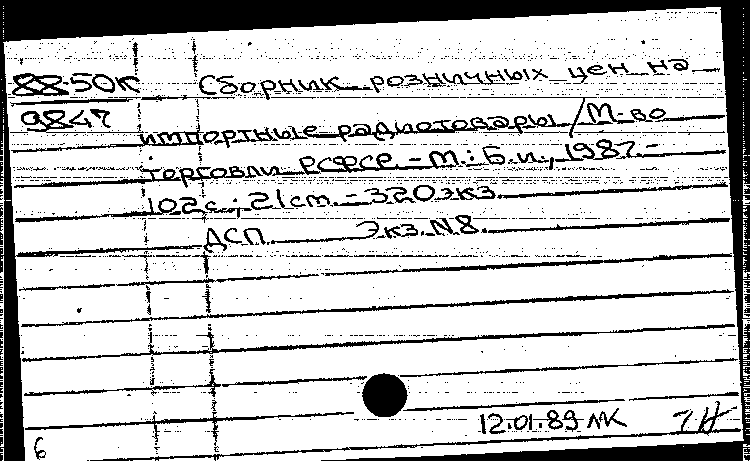 88-50к Сборник розничных цен на
9847
импортные радиотовары / М-во
торговли РСФСР. - М.: Б.и., 1987. -
102 с.; 21 cm. - 320 экз.
ДСП. Экз. N 8.
12.01.89 МК
6